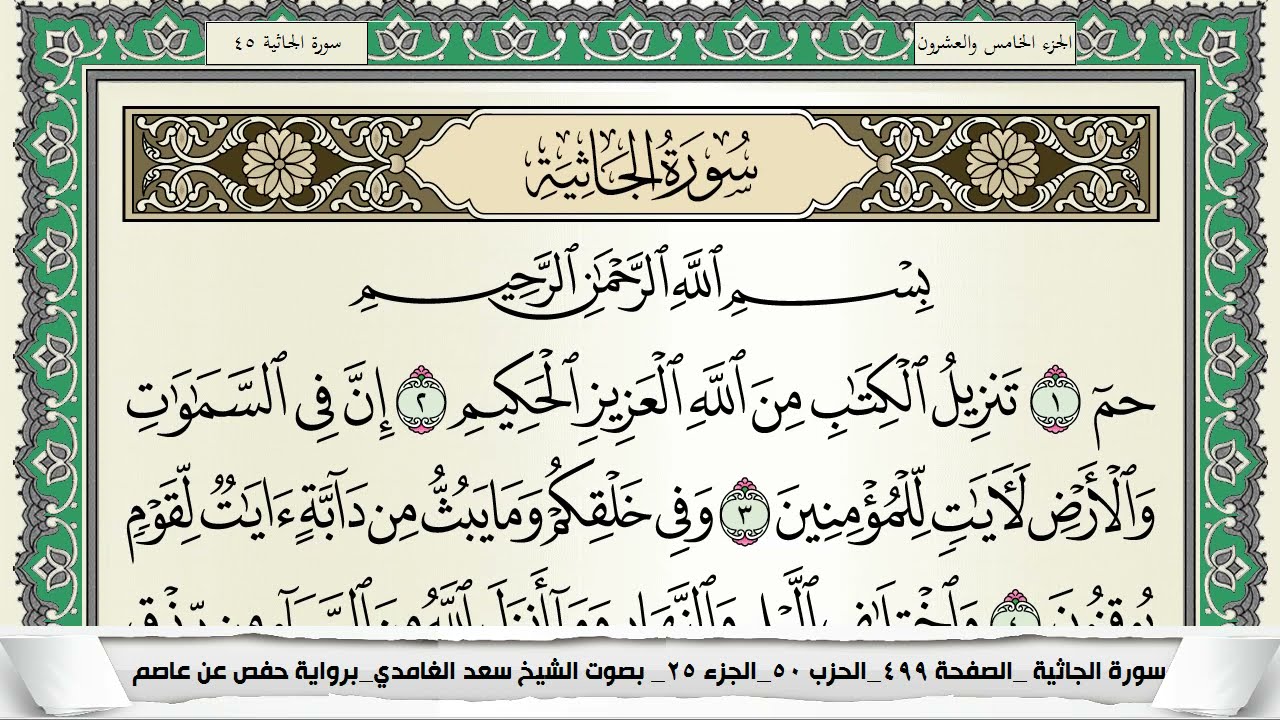 الجزء الخامس والعشرون
سورة الجاثية ٤٥
سُورَةُ الجَاثِيَةِ
بِسْمِ ٱللَّهِ ٱلرَّحْمَٰنِ ٱلرَّحِيمِ
حمٓ ١ تَنزِيلُ ٱلْكِتَٰبِ مِنَ ٱللَّهِ ٱلْعَزِيزِ ٱلْحَكِيمِ ٢ إِنَّ فِى ٱلسَّمَٰوَٰتِ
وَٱلْأَرْضِ لَءَايَٰتٍ لِّلْمُؤْمِنِينَ ٣ وَفِى خَلْقِكُمْ وَمَا يَبُثُّ مِن دَآبَّةٍ ءَايَٰتٌ لِّقَوْمٍ
يُوقِنُونَ ٤ وَٱخْتِلَٰفِ ٱلَّيْلِ وَٱلنَّهَارِ وَمَآ أَنزَلَ ٱللَّهُ مِنَ ٱلسَّمَآءِ مِن رِّزْقٍ
سورة الجاثية _الصفحة ٤٩٩_الحزب ٥٠_الجزء ٢٥_ بصوت الشيخ سعد الغامدي_برواية حفص عن عاصم